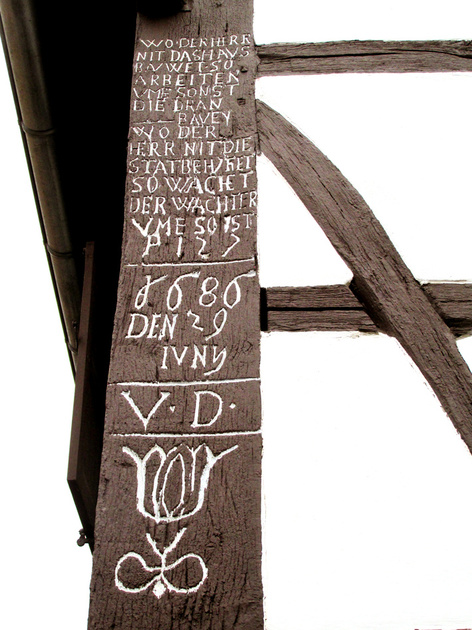 WO DER HERR
NIT DAS HAVS
BAVWET SO
ARBEITEN
VME SONST
DIE DRAN
BAVEN
WO DER
HERR NIT DIE
STAT BEHVTET
SO WACHET
DER WACHTER
VME SONST
P 127
1686
DEN 29
IVNY
V. D.